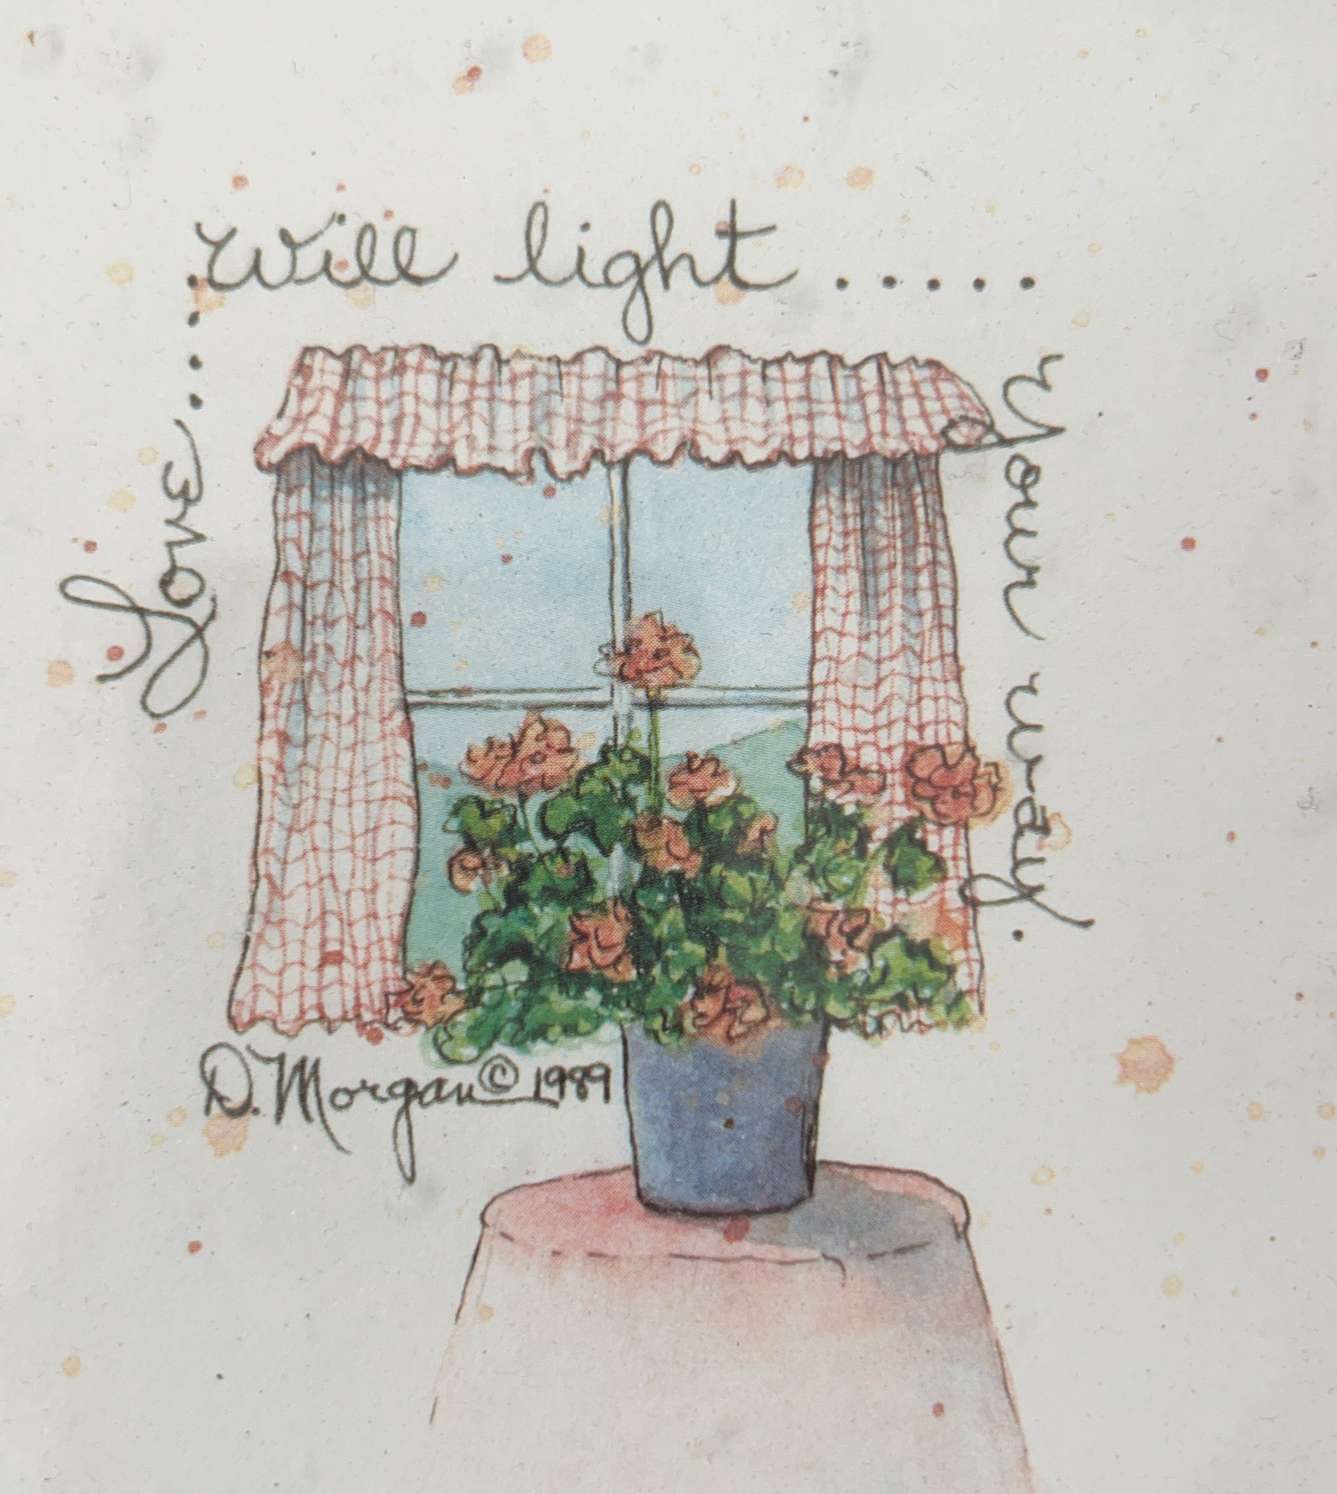 Love...
Will light.....
Your way.
D. Morgan © 1989